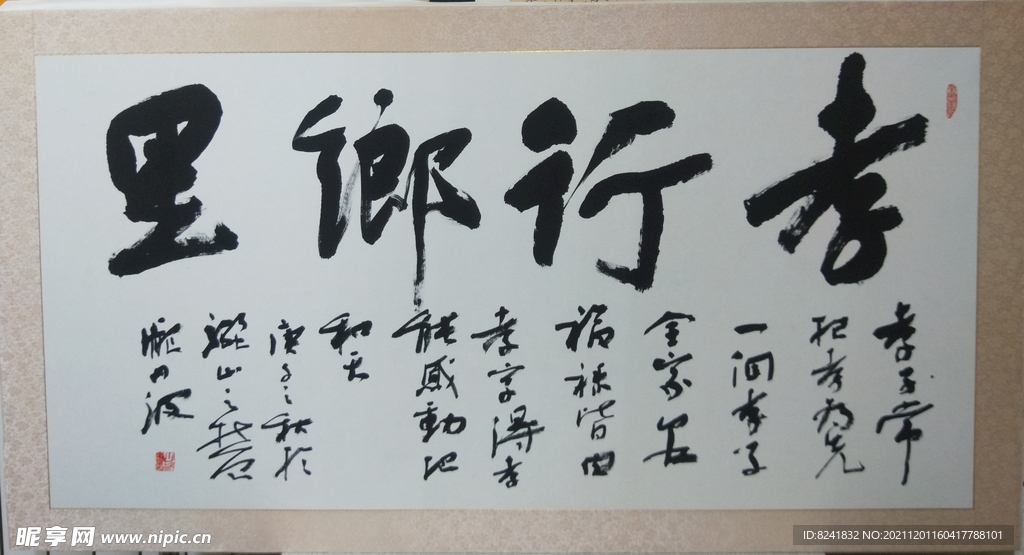 孝行鄉里
孝子常
把孝為先
一個孝字
全家安
福祿皆由
孝字得孝
能感動地
和天
庚子之秋於
山之
昵享网 www.nipic.cn
ID:8241832 NO:20211201160417788101